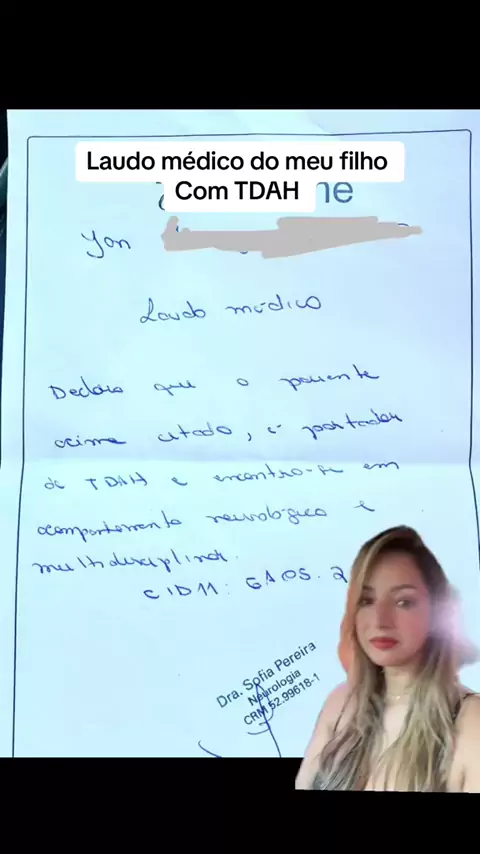 Laudo médico do meu filho
Com TDAH
ne
Yan
Laudo médico
Declaro que o paciente
acima citado, é portador
de TDAH e encontra-se em
acompanhamento neurológico e
multidisciplinar.
CID11: 6A05.2
Dra. Sofia Pereira
Neurologia
CRM 52.99618-1